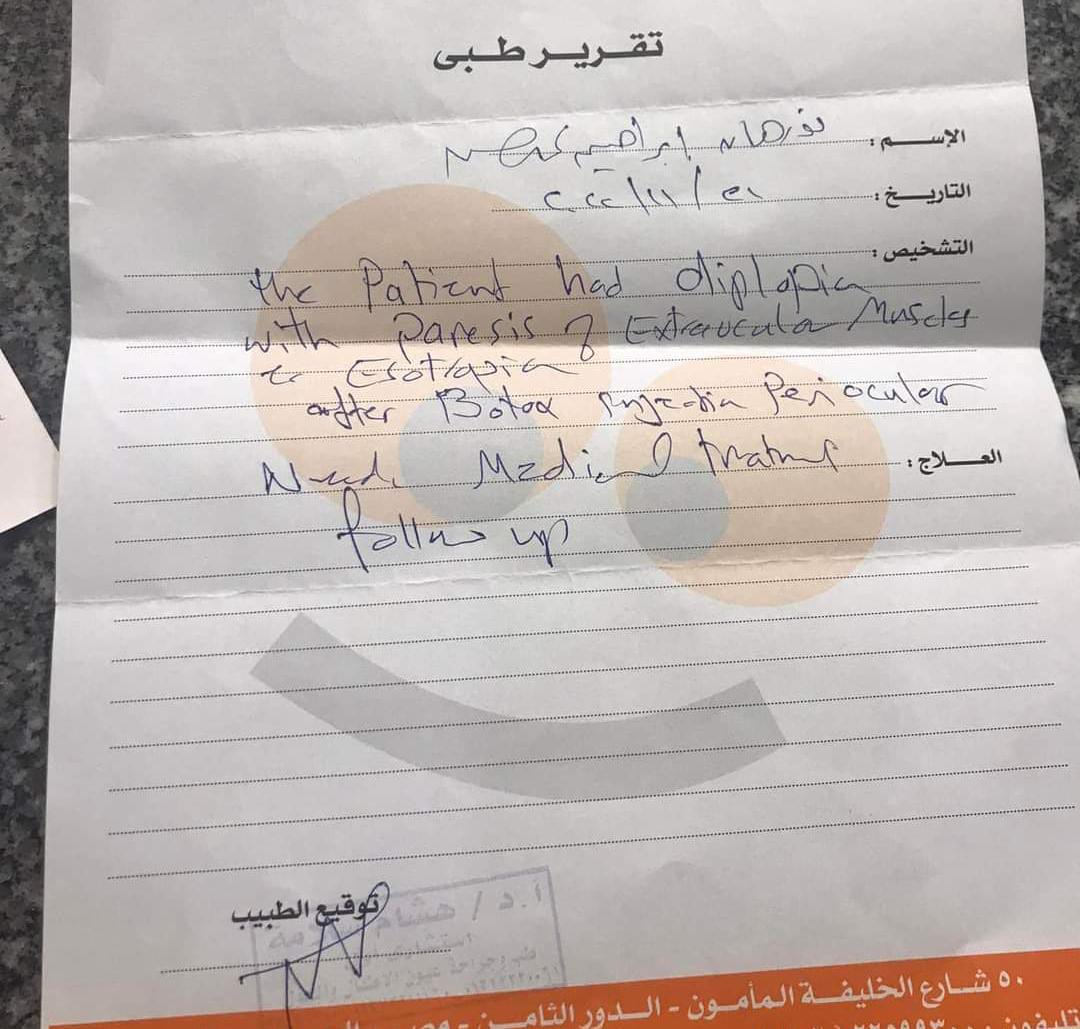 تقرير طبى
الإسم: نورهان إبراهيم
التاريخ:
التشخيص:
the Patient had diplopia
with paresis of Extraocular Muscles
Esotropia
after Botox injection Periocular
العلاج: Need Medical
follow up
توقيع الطبيب
أ.د / هشام
استشارى
طب وجراحة عيون الأطفال
٥٠ شارع الخليفة المأمون - الدور الثامن -
تليفون